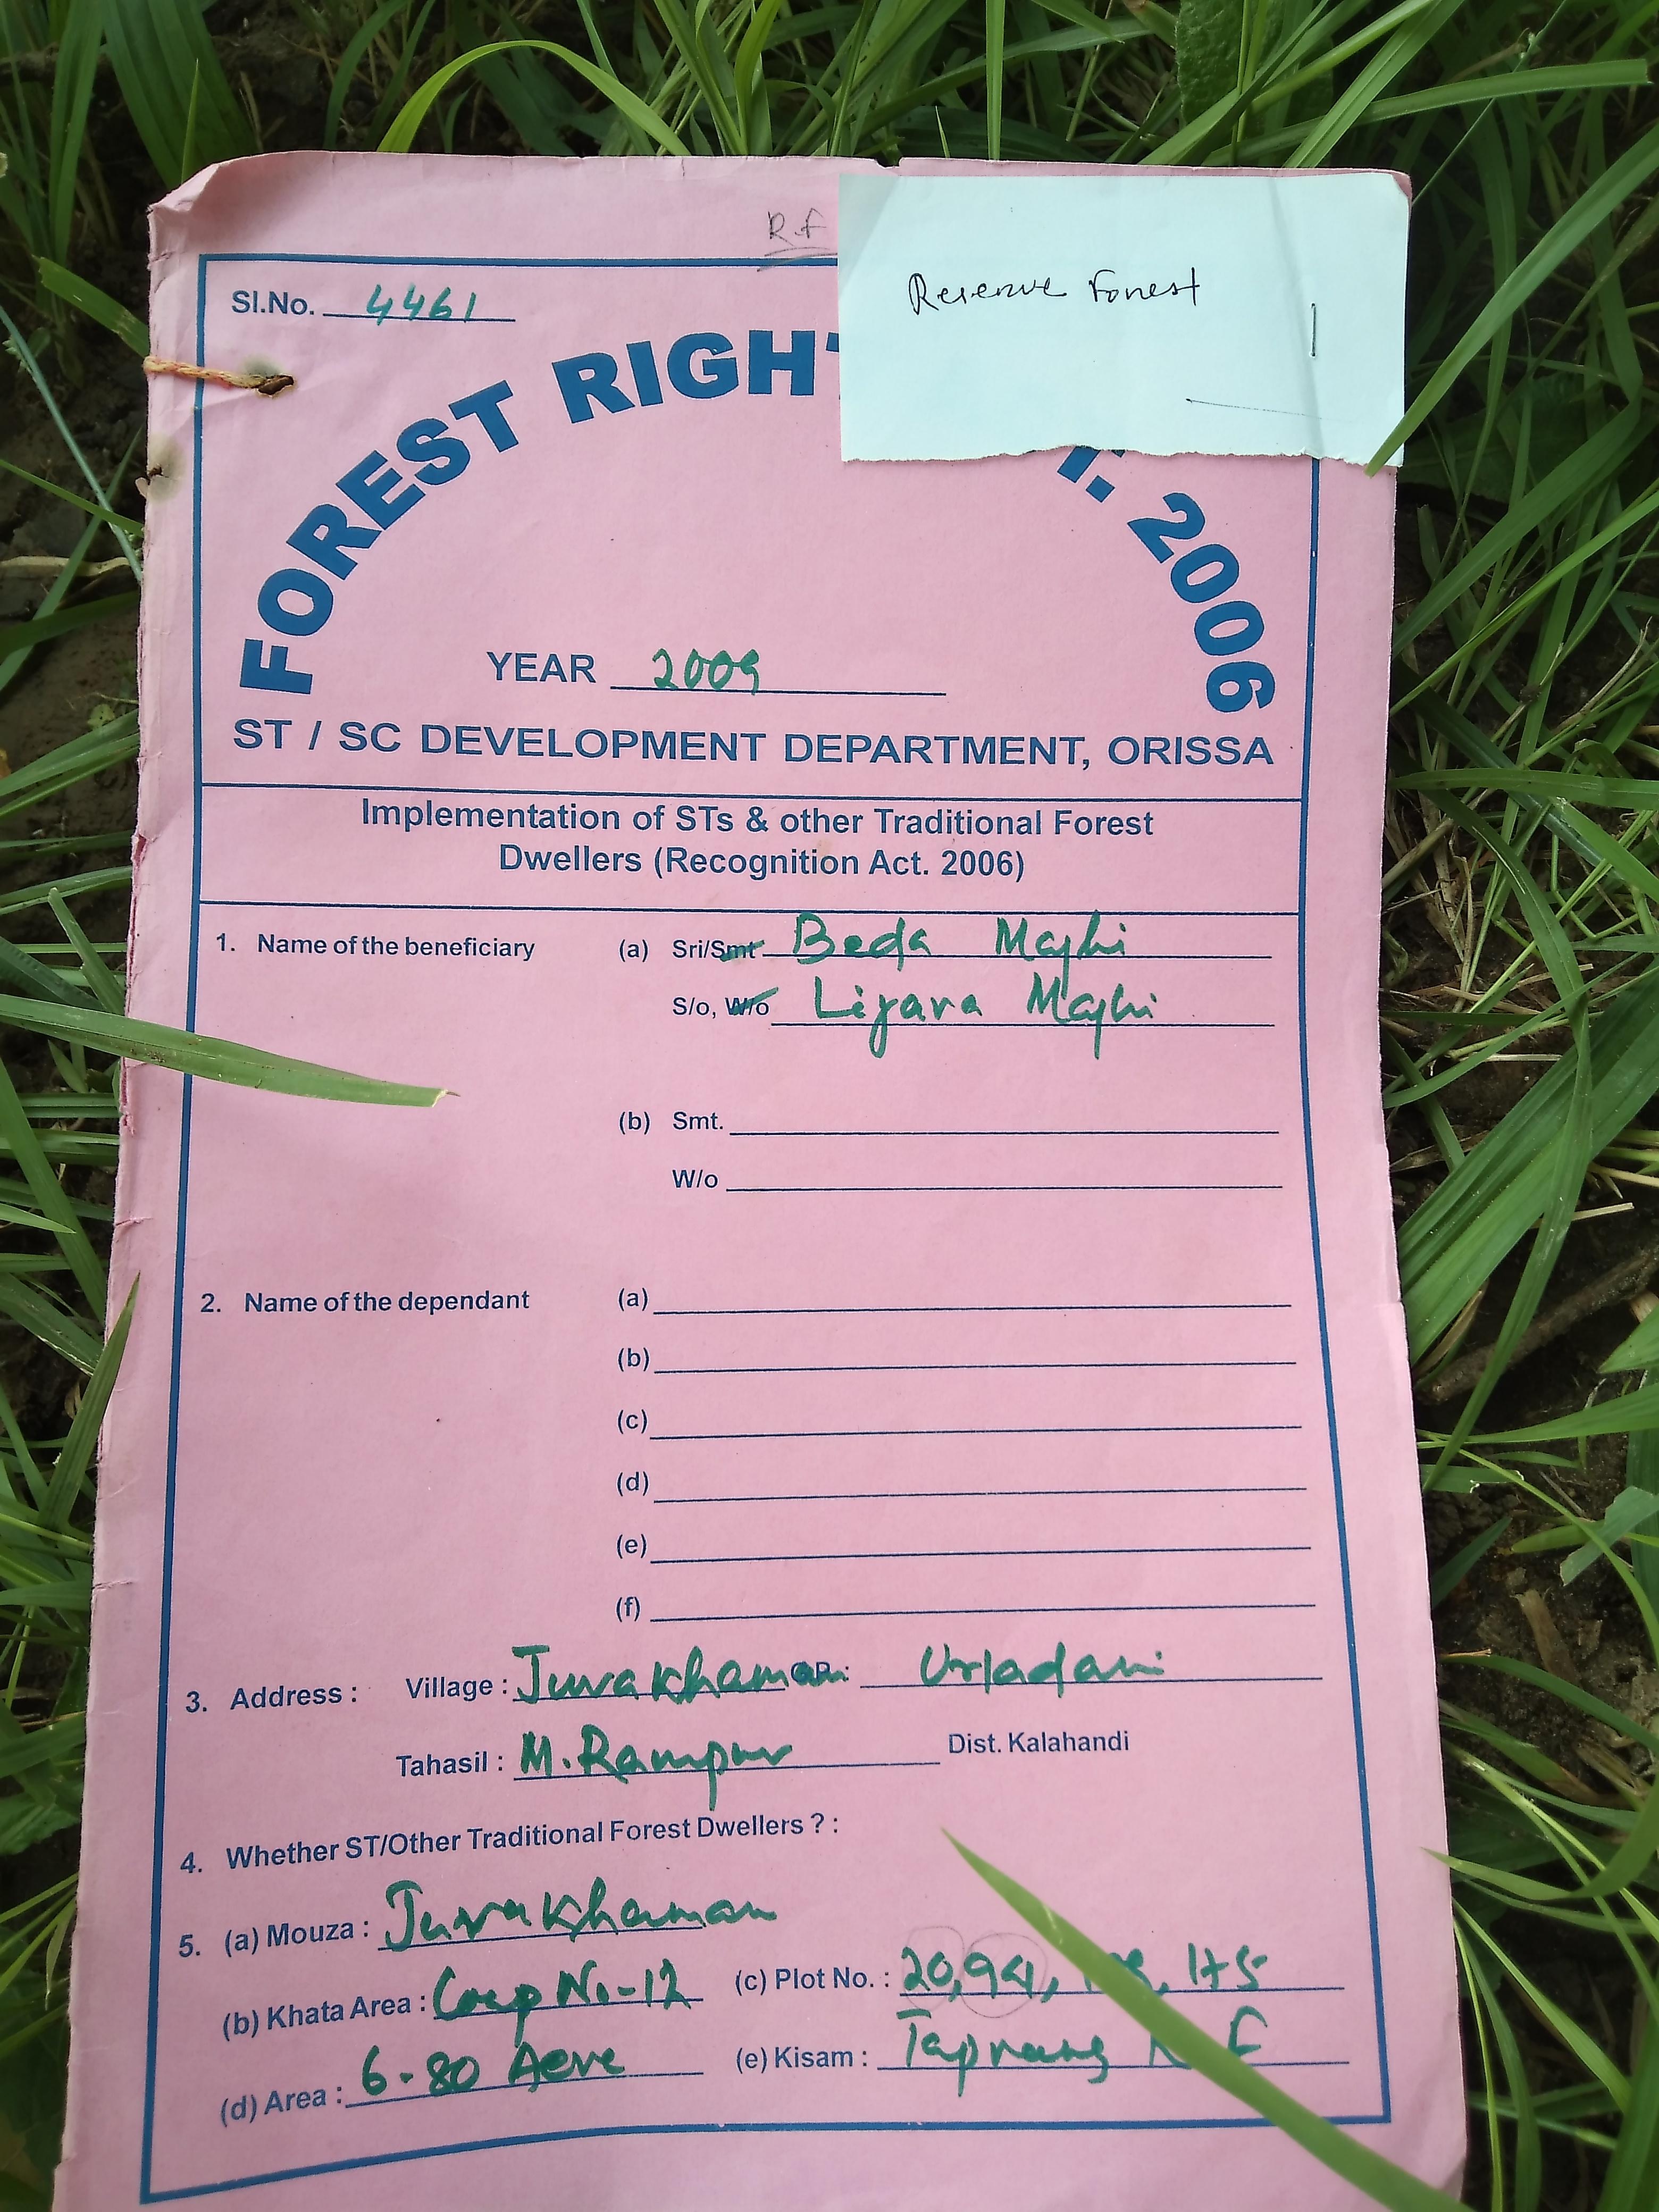 R.F
Reserve Forest
Sl.No. 4461
FOREST RIGHT T. 2006
YEAR 2009
ST / SC DEVELOPMENT DEPARTMENT, ORISSA
Implementation of STs & other Traditional Forest
Dwellers (Recognition Act. 2006)
1. Name of the beneficiary (a) Sri/Smt Beda Majhi
S/o, W/o Majhi
(b) Smt.
W/o
2. Name of the dependant (a)
(b)
(c)
(d)
(e)
(f)
3. Address : Village : Juvakhaman G.P.: Urladani
Tahasil : M.Rampur Dist. Kalahandi
4. Whether ST/Other Traditional Forest Dwellers ? :
5. (a) Mouza : Juvakhaman
(b) Khata Area : No-12 (c) Plot No. : 20, 175
(d) Area : 6-80 Acre (e) Kisam : F